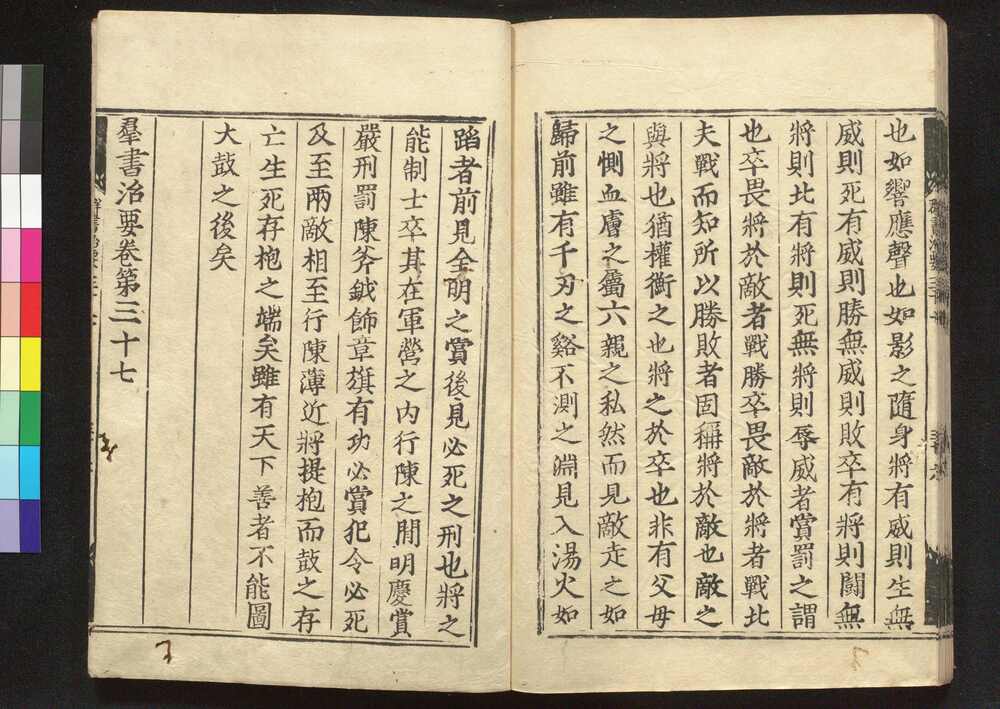 也如響應聲也如影之隨身將有威則生無
威則死有威則勝無威則敗卒有將則鬪無
將則北有將則死無將則辱威者賞罰之謂
也卒畏將於敵者戰勝卒畏敵於將者戰北
夫戰而知所以勝敗者固稱將於敵也敵之
與將也猶權衡之也將之於卒也非有父母
之惻血膚之屬六親之私然而見敵走之如
歸前雖有千刃之谿不測之淵見入湯火如
蹈者前見全明之賞後見必死之刑也將之
能制士卒其在軍營之內行陳之閒明慶賞
嚴刑罰陳斧鉞飾章旗有功必賞犯令必死
及至兩敵相至行陳薄近將提枹而鼓之存
亡生死存枹之端矣雖有天下善者不能圖
大鼓之後矣
羣書治要卷第三十七